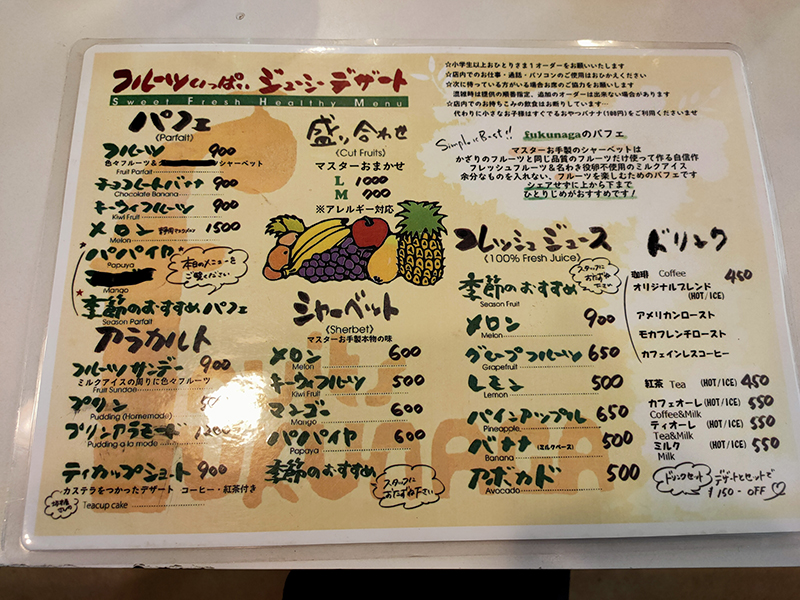 フルーツいっぱい ジューシーデザート
Sweet Fresh Healthy Menu
パフェ
(Parfait)
フルーツ 900
色々フルーツ& シャーベット
Fruit Parfait
チョコレートバナナ 900
Chocolate Banana
キーウィフルーツ 900
Kiwi Fruit
メロン 1500
Melon
パパイヤ
Papuya
Mango
本日のメニューを
ご覧ください
季節のおすすめパフェ
Season Parfait
アラカルト
フルーツサンデー 900
ミルクアイスの周りに色々フルーツ
Fruit Sundae
プリン
Pudding (Homemade)
プリンアラモード 1200
Pudding a la mode
ティカップショート 900
カステラをつかったデザート コーヒー・紅茶付き
Teacup cake
盛り合わせ
(Cut Fruits)
マスターおまかせ
L 1000
M 700
※アレルギー対応
シャーベット
(Sherbet)
マスターお手製本物の味
メロン 600
Melon
キーウィフルーツ 500
Kiwi Fruit
マンゴー 600
Mango
パパイヤ 600
Papaya
季節のおすすめ
スタッフに
おたずね下さい
☆小学生以上おひとりさま1オーダーをお願いいたします
☆店内でのお仕事・通話・パソコンのご使用はおひかえください
☆次に待っている方がいる場合お席のご協力をお願いします
混雑時は提供の順番指定、追加のオーダーは出来ない場合があります
☆店内でのお持ちこみの飲食はお断りしています…
代わりに小さなお子様はすぐでるおやつバナナ(100円)をご利用くださいませ
Simple is Best!!
fukunagaのパフェ
マスターお手製のシャーベットは
かざりのフルーツと同じ品質のフルーツだけ使って作る自信作
フレッシュフルーツ&名わき役卵不使用のミルクアイス
余分なものを入れない。フルーツを楽しむためのパフェです
シェアせずに上から下まで
ひとりじめがおすすめです!
フレッシュジュース
(100% Fresh Juice)
季節のおすすめ
Season Fruit
スタッフに
おたずね
下さい
メロン 900
Melon
グレープフルーツ 650
Grapefruit
レモン 500
Lemon
パインアップル 650
Pineapple
バナナ (ミルクベース) 500
Banana
アボカド 500
Avocado
ドリンク
珈琲 Coffee 450
オリジナルブレンド
(HOT/ICE)
アメリカンロースト
モカフレンチロースト
カフェインレスコーヒー
紅茶 Tea (HOT/ICE) 450
カフェオーレ (HOT/ICE) 550
Coffee&Milk
ティオーレ (HOT/ICE) 550
Tea&Milk
ミルク (HOT/ICE) 550
Milk
ドリンクセット
デザートとセットで
¥150-OFF